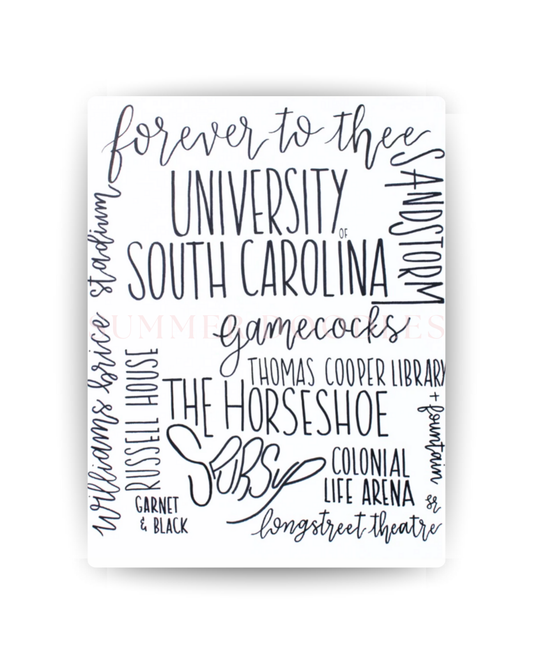 forever to thee
SANDSTORM
UNIVERSITY
OF
SOUTH CAROLINA
williams brice stadium
gamecocks
RUSSELL HOUSE
THOMAS COOPER LIBRARY
+ fountain
THE HORSESHOE
SPURS UP
COLONIAL
LIFE ARENA
GARNET
& BLACK
longstreet theatre